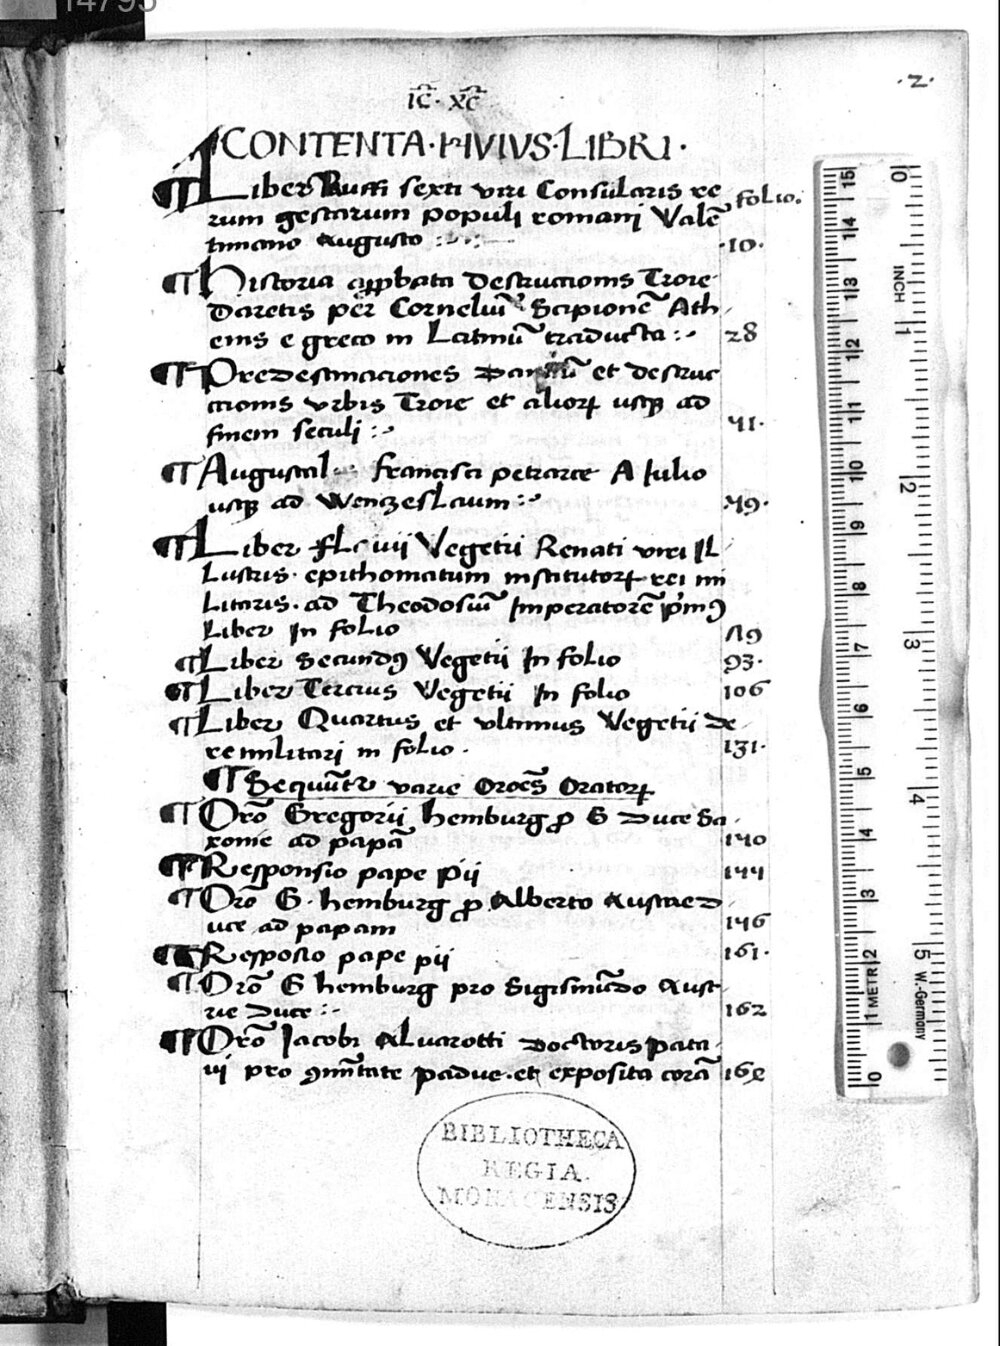 14795
.2.
IC̄. XC̄
CONTENTA·HVIVS·LIBRI·
¶ Liber Ruffi sexti viri Consularis re folio.
rum gestarum populi romani Valē
tiniano Augusto :~ .10.
¶ Historia apꝓbata Destructionis Troie
Daretis per Corneliū Scipionē Ath
enis e greco in Latinū traducta :~ 28
¶ Predestinaciones et destruc
tionis vrbis Troie et alioꝝ usqꝫ ad
finem seculi :~ 41.
¶ Augustal Francisci petrarce A Iulio
usqꝫ ad Wenczeslaum :~ 49.
¶ Liber Flauij Vegetii Renati viri Il
Lustris. epithomatum institutoꝝ rei mi
Litaris. ad Theodosiū Imperatorē p̄mꝰ
Liber In folio 89
¶ Liber Secundꝰ Vegetii In folio 93.
¶ Liber Tercius Vegetii In folio 106
¶ Liber Quartus et vltimus Vegetii De
re militari in folio . 131.
¶ Sequūtr varie Oroēs Oratoꝝ
¶ Orō Gregorii hemburg ꝓ G Duce Sa
xonie ad papā 140
¶ Responsio pape pij 144
¶ Orō G. hemburg ꝓ Alberto Austrie D
uce ad papam 146
¶ Resposio pape pij 161.
¶ Orō G hemburg pro Sigismūdo Aust
rie Duce :~ 162
¶ Orō Jacobi Aluarotti Doctoris pata
uj pro ꝯmūtate padue. et exposita corā 168
BIBLIOTHECA
REGIA.
MONACENSIS
0 1 2 3 4 5 6 7 8 9 10 11 12 13 14 15
1 METR
0 1 2 3 4 5
INCH
W.-Germany